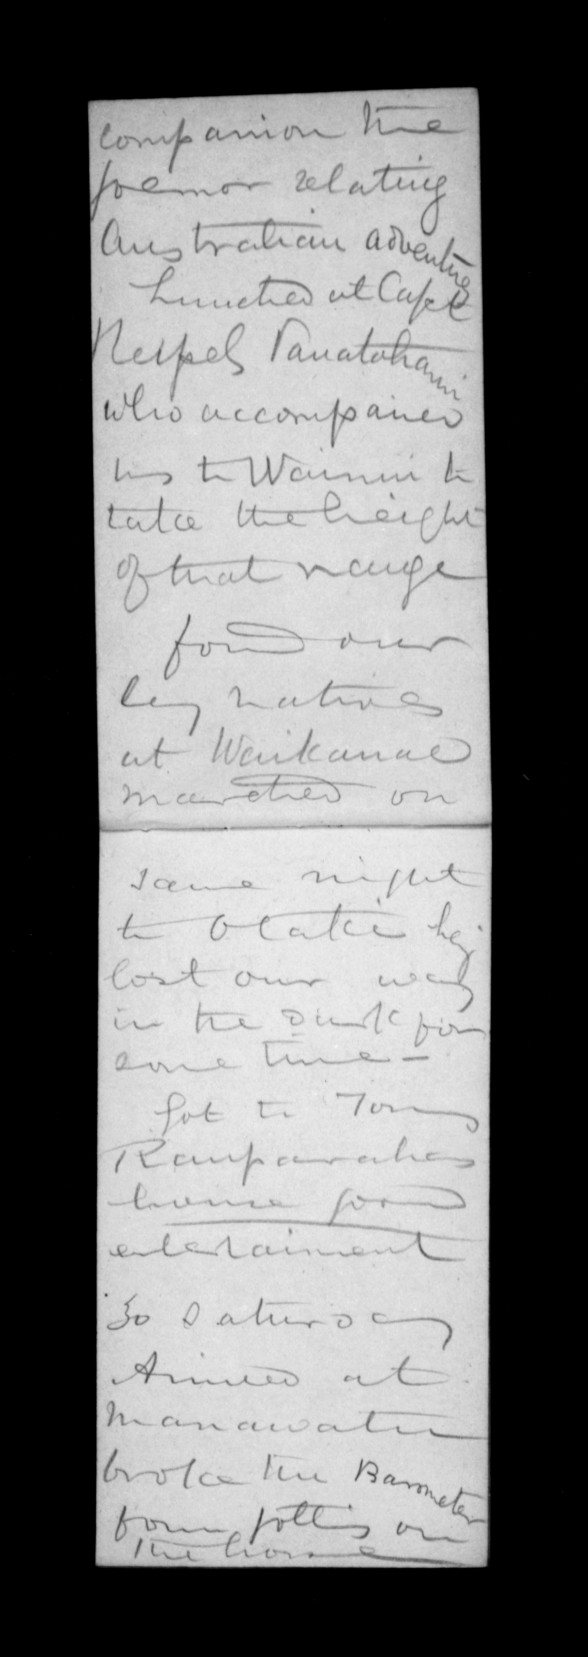 companion the
relating
Australian adventure
Lunched at Cape
who accompanied
us to Wainui to
take the height
of that range
found our
lazy natives
at Waikanae
marched on
same night
to Otaki hg
lost our way
in the dusk for
some time -
Got to Tomy
Rauparahas
house good
entertainment
30 Saturday
Arrived at
Manawatu
broke the Barometer
from on
the horse